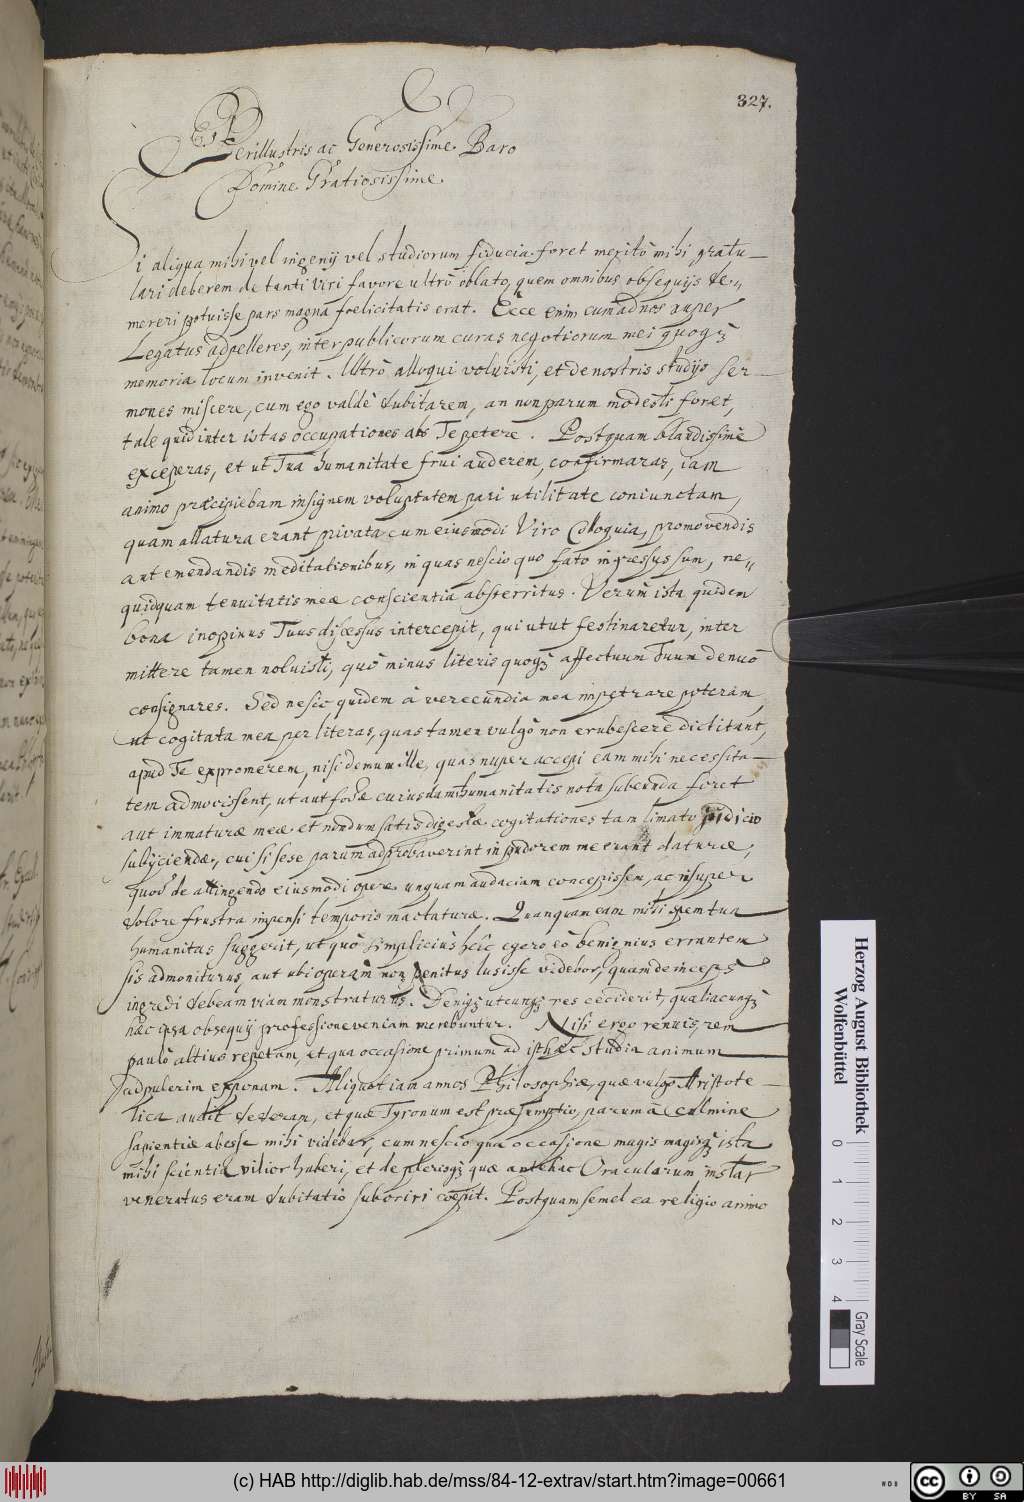 327.
Perillustris ac Generosissime Baro
Domine Gratiosissime.
Si aliqua mihi vel ingenij vel studiorum fiducia foret meritò mihi gratu-
lari deberem de tanti Viri favore ultrò oblato, quem omnibus obsequijs de„
mereri potuisse pars magna foelicitatis erat. Ecce enim cum ad nos nuper
Legatus adpelleres, inter publicorum curas negotiorum mei quoqꝫ
memoria locum invenit. Ultrò alloqui voluisti, et de nostris studijs ser-
mones miscere, cum ego valdè dubitarem, an non parum modesti foret,
tale quid inter istas occupationes abs Te petere. Postquam blandissimè
exceperas, et ut Tua humanitate frui auderem, confirmaras, iam
animo præcipiebam insignem voluptatem pari utilitate coniunctam,
quam allatura erant privata cum eiusmodi Viro Colloquia, promovendis
aut emendandis meditationibus, in quas nescio quo fato ingressus sum, ne„
quidquam tenuitatis meæ conscientia absterritus. Verùm ista quidem
bona inopinus Tuus discessus intercepit, qui utut festinaretur, inter
mittere tamen noluisti, quò minus literis quoqꝫ affectuum Tuum denuò
consignares. Sed ne sic quidem à verecundia mea impetrare poteram,
ut cogitata mea per literas, quas tamen vulgò non erubescere dictitant,
apud Te expromerem, nisi demum illæ, quas nuper accepi eam mihi necessita-
tem admovissent, ut aut fodæ cuiusdam inhumanitatis nota subeunda foret
aut immaturæ meæ et nondum satis digestæ cogitationes tam limato judicio
subijciendæ, cui si sese parum adprobaverint in pudorem me erant daturæ,
quod de attingendo eiusmodi opere unquam audaciam concepissem, ac insuper
dolore frustra inpensi temporis mactaturæ. Quanquam eam mihi spem tua
humanitas suggerit, ut quò simplicius heic egero eò benignius errantem
sis admoniturus, aut ubi operam non penitus lusisse videbor, quam deincepꝫ
ingredi debeam viam monstraturus. Deniqꝫ utcunqꝫ res ceciderit, qualiacunqꝫ
hæc ipsa obsequij professione veniam merebuntur. Nisi ergo renuis, rem
paulò altius repetam, et qua occasione primum ad isthæc studia animum
adpulerim exponam. Aliquot iam annos Philosophiæ, quæ vulgo Aristote-
lica audit dederam, et quæ Tyronum est præsumptio, parum à culmine
sapientiæ abesse mihi videbar, cum nescio qua occasione magis magisqꝫ ista
mihi scientia vilior haberi, et de plerisqꝫ quæ antehac Oraculorum instar
veneratus eram dubitatio suboriri coepit. Postquam semel ea religio animo
Herzog August Bibliothek
Wolfenbüttel
0 1 2 3 4
Gray Scale
(c) HAB http://diglib.hab.de/mss/84-12-extrav/start.htm?image=00661
cc BY SA